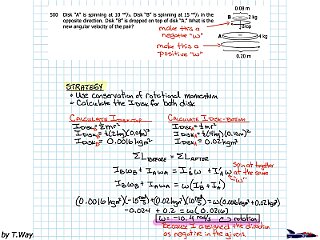 500 Disk "A" is spinning at 10 rad/s. Disk "B" is spinning at 15 rad/s in the
opposite direction. Disk "B" is dropped on top of disk "A." What is the
new angular velocity of the pair?
0.08 m
B 2 kg
make this a
negative "ω"
A 4 kg
make this a
positive "ω"
0.20 m
STRATEGY
• Use conservation of rotational momentum
• Calculate the IDISK for both disk
CALCULATE
IDISK = ½mr²
IDISK = ½(2kg)(0.04)²
IDISK = 0.0016 kgm²
CALCULATE IDISK-BOTTOM
IDISK = ½mr²
IDISK = ½(4kg)(0.10m)²
IDISK = 0.02 kgm²
ΣLBEFORE = ΣLAFTER
IBωB + IAωA = IBω + IAω
Spin together
at the same
"ω"
IBωB + IAωA = ω(IB + IA)
-0.024 + 0.2 = ω(0.0216)
rotation
because I assigned the direction
as negative in the given.
by T.Way.